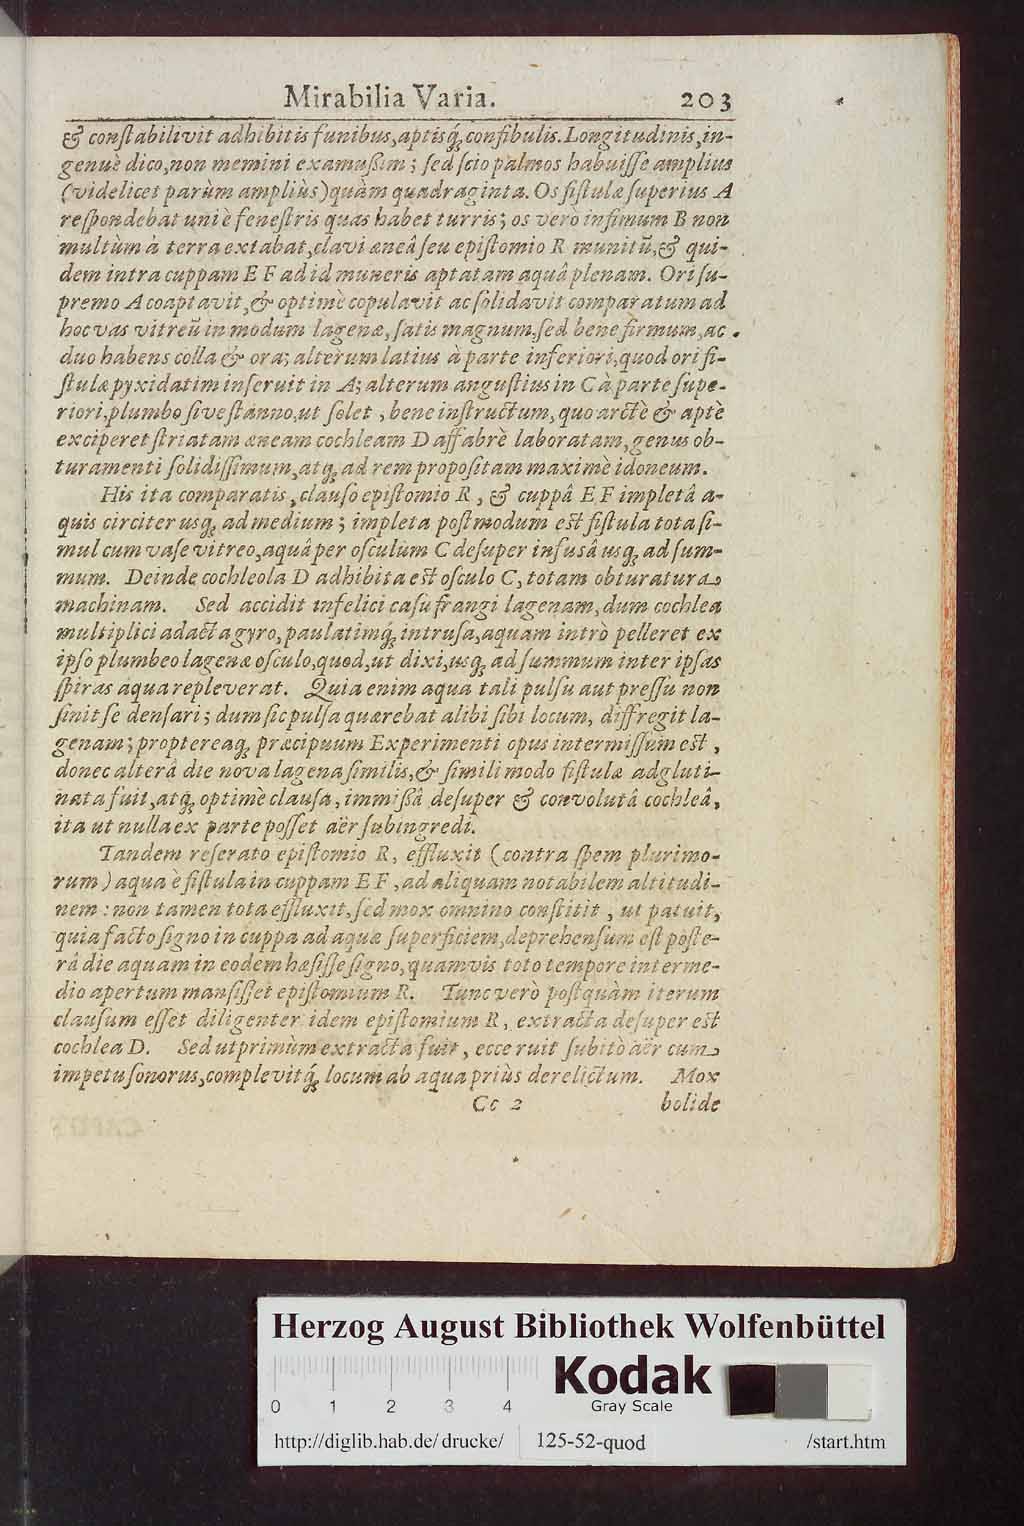 Mirabilia Varia. 203
& conſtabilivit adhibitis funibus, aptisq́; confibulis. Longitudinis, in-
genuè dico, non memini examußim; ſed ſcio palmos habuiſſe ampliùs
(videlicet parùm ampliùs) quàm quadraginta. Os fiſtulæ ſuperius A
reſpondebat uni è feneſtris quas habet turris; os verò infimum B non
multùm à terra extabat, clavi æneâ ſeu epiſtomio R munitū, & qui-
dem intra cuppam E F ad id muneris aptatam aquâ plenam. Ori ſu-
premo A coaptavit, & optimè copulavit ac ſolidavit comparatum ad
hoc vas vitreū in modum lagenæ, ſatis magnum, ſed bene firmum, ac
duo habens colla & ora; alterum latius à parte inferiori, quod ori fi-
ſtulæ pyxidatim inſeruit in A; alterum anguſtius in C à parte ſupe-
riori, plumbo ſive ſtanno, ut ſolet, bene inſtructum, quo arctè & aptè
exciperet ſtriatam æneam cochleam D affabrè laboratam, genus ob-
turamenti ſolidiſſimum, atq́; ad rem propoſitam maximè idoneum.
His ita comparatis, clauſo epiſtomio R, & cuppâ E F impletâ a-
quis circiter usq́; ad medium; impleta poſtmodum eſt fiſtula tota ſi-
mul cum vaſe vitreo, aquâ per oſculum C deſuper infusâ usq́; ad ſum-
mum. Deinde cochleola D adhibita eſt oſculo C, totam obturatura
machinam. Sed accidit infelici caſu frangi lagenam, dum cochlea
multiplici adacta gyro, paulatimq́; intruſa, aquam intrò pelleret ex
ipſo plumbeo lagenæ oſculo, quod, ut dixi, usq́; ad ſummum inter ipſas
ſpiras aqua repleverat. Quia enim aqua tali pulſu aut preſſu non
ſinit ſe denſari; dum ſic pulſa quærebat alibi ſibi locum, diffregit la-
genam; proptereaq́; præcipuum Experimenti opus intermiſſum eſt,
donec alterâ die nova lagena ſimilis, & ſimili modo fiſtulæ adgluti-
nata fuit, atq́; optimè clauſa, immißâ deſuper & convolutâ cochleâ,
ita ut nulla ex parte poſſet aër ſubingredi.
Tandem reſerato epiſtomio R, effluxit (contra ſpem plurimo-
rum) aqua è fiſtula in cuppam E F, ad aliquam notabilem altitudi-
nem: non tamen tota effluxit, ſed mox omnino conſtitit, ut patuit,
quia facto ſigno in cuppa ad aquæ ſuperficiem, deprehenſum eſt poſte-
râ die aquam in eodem hæſiſſe ſigno, quamvis toto tempore interme-
dio apertum manſiſſet epiſtomium R. Tunc verò poſtquàm iterum
clauſum eſſet diligenter idem epiſtomium R, extracta deſuper eſt
cochlea D. Sed ut primùm extracta fuit, ecce ruit ſubitò aër cum
impetu ſonorus, complevitq́; locum ab aqua priùs derelictum. Mox
Cc 2 bolide
Herzog August Bibliothek Wolfenbüttel
Kodak
Gray Scale
0 1 2 3 4
http://diglib.hab.de/drucke/ 125-52-quod /start.htm